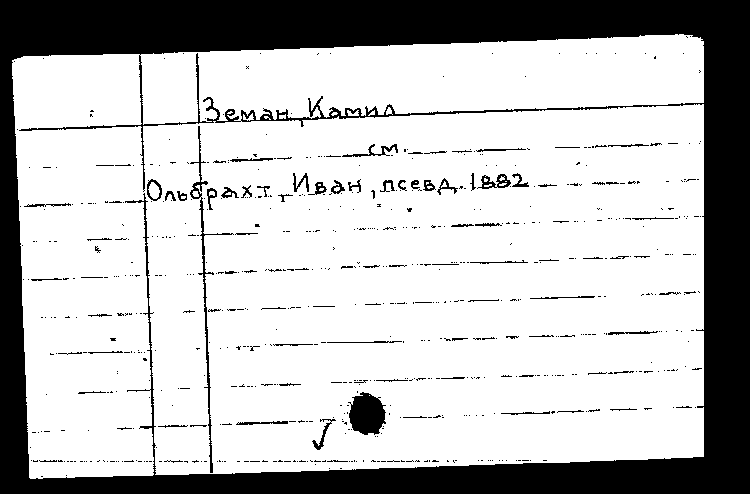 Земан, Камил
см.
Ольбрахт, Иван, псевд. 1882